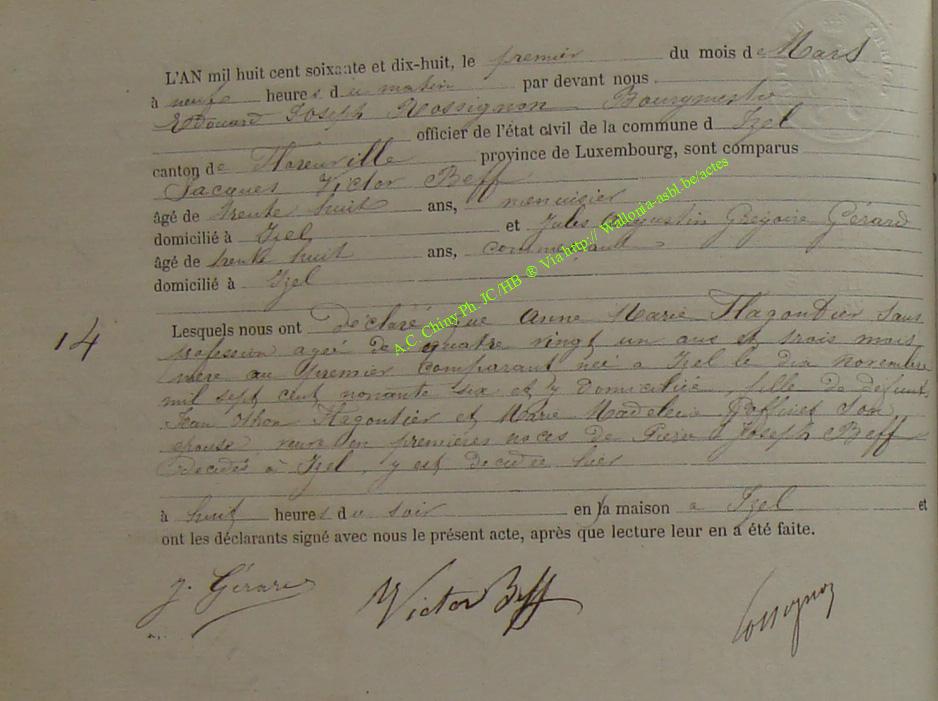 L'AN mil huit cent soixante et dix-huit, le premier du mois de Mars
à neuf heures du matin par devant nous
Edouard Joseph Rossignon Bourgmestre
officier de l'état civil de la commune d Izel
canton de Florenville province de Luxembourg, sont comparus
Jacques Victor Beff
âgé de trente huit ans, menuisier
domicilié à Izel et Jules Augustin Gregoire Gérard
âgé de trente huit ans, commerçant
domicilié à Izel
14 Lesquels nous ont déclaré que Anne Marie Hagontier sans
profession agée de quatre vingt un ans et trois mois
mère au premier comparant née à Izel le dix novembre
mil sept cent nonante six et y domiciliée, fille de défunt
Jean Hagontier et Marie Madeleine son
épouse veuve en premières noces de Pierre Joseph Beff
décédés à Izel, y est décédée hier
à huit heures du soir en sa maison à Izel et
ont les déclarants signé avec nous le présent acte, après que lecture leur en a été faite.
J. Gérard Victor Beff Rossignon
A.C. Chiny Ph. JC/HB ® Via http:// Wallonia-asbl.be/actes